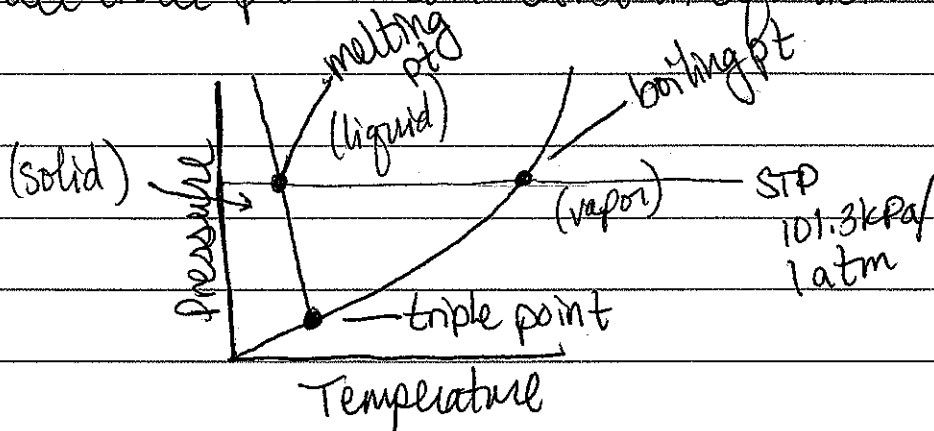 melting
pt
boiling pt
(liquid)
(solid)
STP
(vapor)
101.3kPa/
1 atm
Pressure
triple point
Temperature